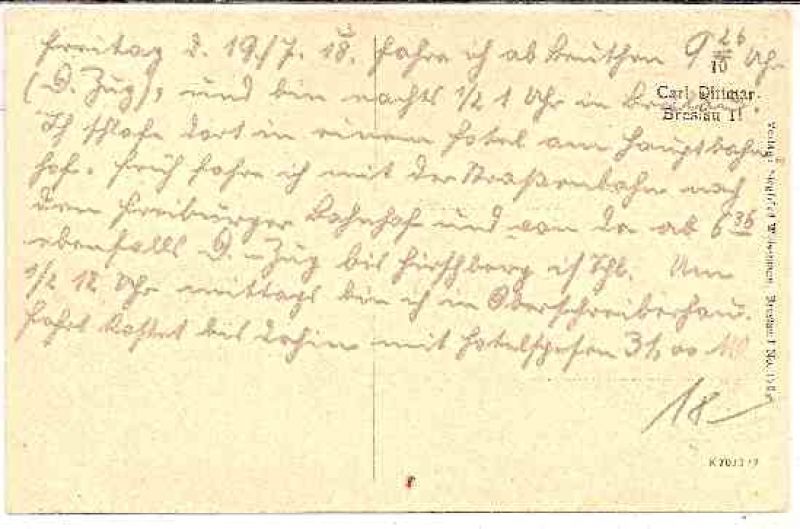 Freitag d. 19./7. 18. fahre ich ab Beuthen 9 26 Uhr
10
(D. Zug), und bin nachts 1/2 1 Uhr in Breslau.
Carl Dittmar
Breslau 11
Ich schlafe dort in einem Hotel am Hauptbahn
hof. Früh fahre ich mit der Straßenbahn nach
dem Freiburger Bahnhof und von da ab 6 36
ebenfalls D.-Zug bis Hirschberg i/Schl. Um
1/2 12 Uhr mittags bin ich in Oberschreiberhau.
Fahrt kostet bis dahin mit Hotelspesen 31,00 M
18
Verlag: Breslau I